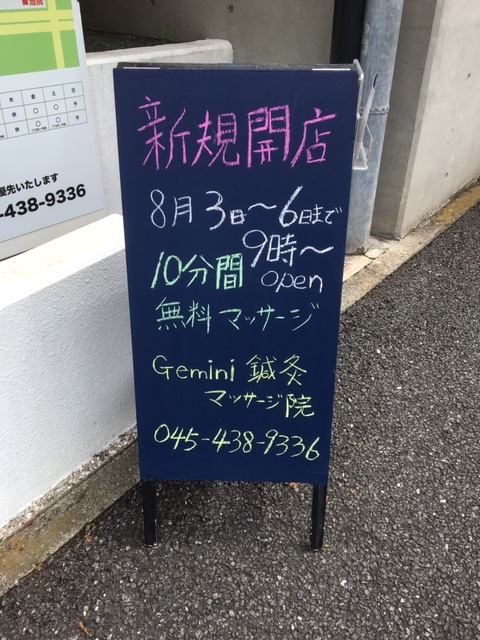 当院
木 金 土 日
優先いたします
-438-9336
新規開店
8月3日～6日まで
9時～
10分間 open
無料マッサージ
Gemini 鍼灸
マッサージ院
045-438-9336